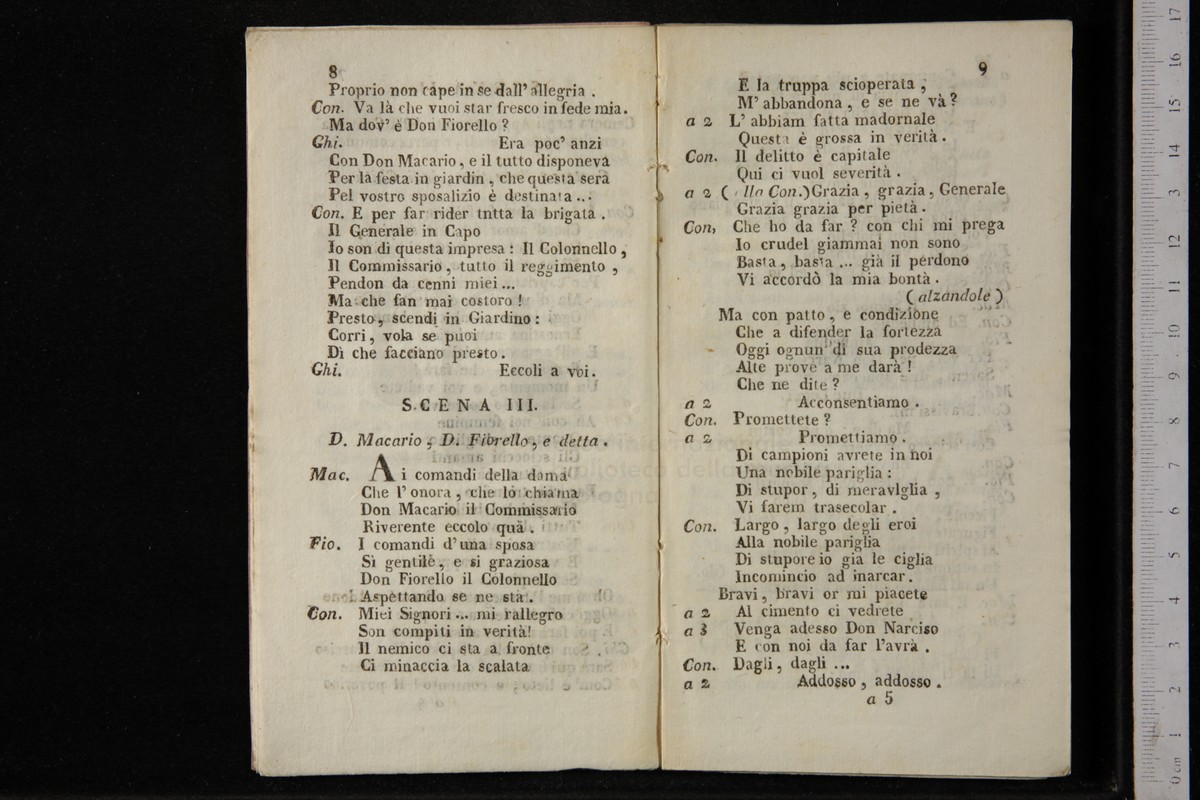 8
Proprio non cape in se dall' allegria .
Con. Va là che vuoi star fresco in fede mia.
Ma dov' è Don Fiorello ?
Ghi. Era poc' anzi
Con Don Macario , e il tutto disponeva
Per la festa in giardin , che questa sera
Pel vostro sposalizio è destinata ...
Con. E per far rider tntta la brigata .
Il Generale in Capo
Io son di questa impresa : Il Colonnello ,
Il Commissario , tutto il reggimento ,
Pendon da cenni miei ...
Ma che fan mai costoro !
Presto , scendi in Giardino :
Corri , vola se puoi
Dì che facciano presto .
Ghi. Eccoli a voi .
SCENA III.
D. Macario , D. Fiorello , e detta .
Mac. Ai comandi della dama
Che l' onora , che lo chiama
Don Macario il Commissario
Riverente eccolo quà .
Fio. I comandi d' una sposa
Sì gentile , e sì graziosa
Don Fiorello il Colonnello
Aspettando se ne stà .
Con. Miei Signori ... mi rallegro
Son compiti in verità !
Il nemico ci sta a fronte
Ci minaccia la scalata
9
E la truppa scioperata ,
M' abbandona , e se ne và ?
a 2 L' abbiam fatta madornale
Questa è grossa in verità .
Con. Il delitto è capitale
Qui ci vuol severità .
a 2 ( lla Con.) Grazia , grazia , Generale
Grazia grazia per pietà .
Con, Che ho da far ? con chi mi prega
Io crudel giammai non sono
Basta , basta ... già il perdono
Vi accordò la mia bontà .
( alzandole )
Ma con patto , e condizione
Che a difender la fortezza
Oggi ognun di sua prodezza
Alte prove a me darà !
Che ne dite ?
a 2 Acconsentiamo .
Con. Promettete ?
a 2 Promettiamo .
Di campioni avrete in noi
Una nobile pariglia :
Di stupor , di meraviglia ,
Vi farem trasecolar .
Con. Largo , largo degli eroi
Alla nobile pariglia
Di stupore io già le ciglia
Incomincio ad inarcar .
Bravi , bravi or mi piacete
a 2 Al cimento ci vedrete
a 3 Venga adesso Don Narciso
E con noi da far l'avrà .
Con. Dagli , dagli ...
a 2 Addosso , addosso .
a 5